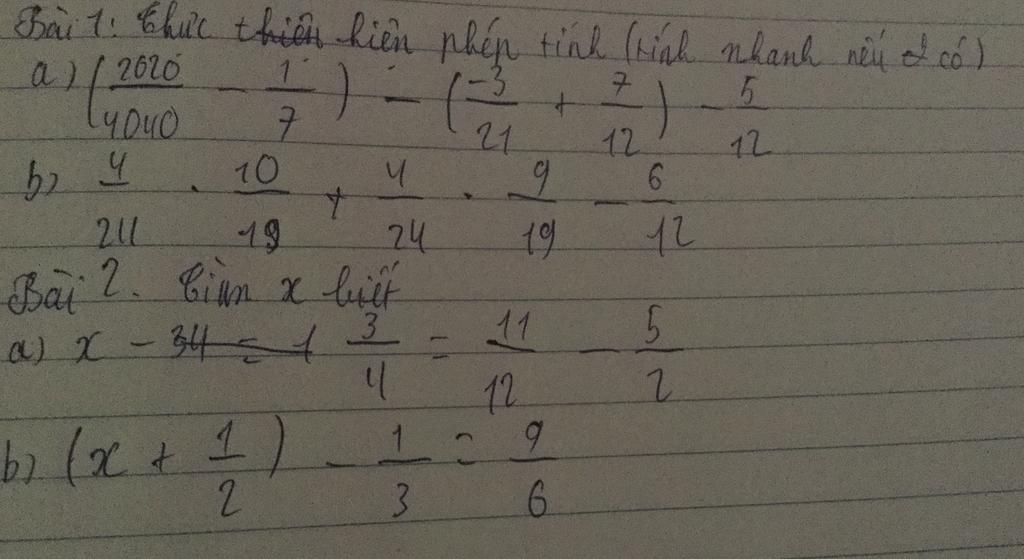 Bài 1: Thực hiện phép tính (tính nhanh nếu có)
a) (2020/4040 - 1/7) - (-3/21 + 7/12) - 5/12
b) 4/24 . 10/19 + 4/24 . 9/19 - 6/12
Bài 2. Tìm x biết
a) x - 3/4 = 11/12 - 5/2
b) (x + 1/2) - 1/3 = 9/6